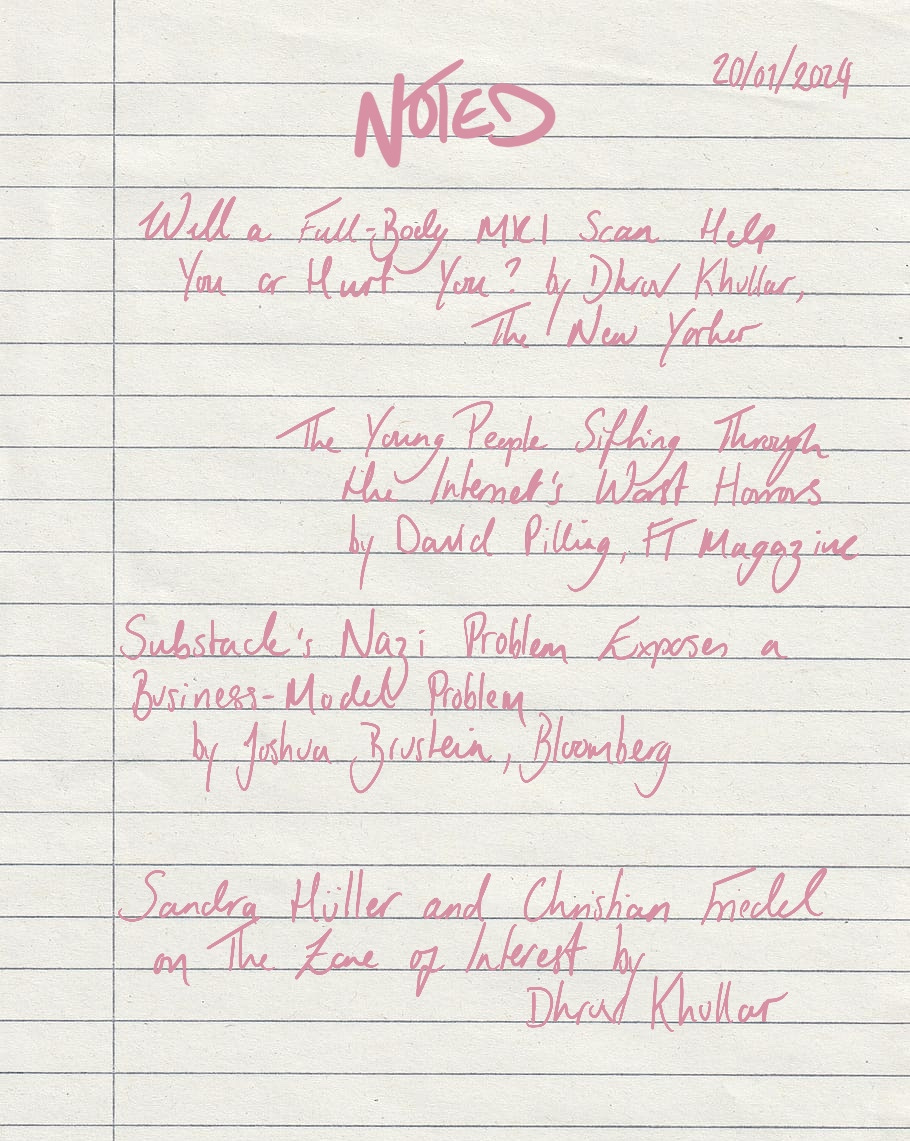 20/01/2024
NOTED
Will a Full-Body MRI Scan Help
You or Hurt You? by Dhruv Khullar,
The New Yorker
The Young People Sifting Through
the Internet's Worst Horrors
by David Pilling, FT Magazine
Substack's Nazi Problem Exposes a
Business-Model Problem
by Joshua Brustein, Bloomberg
Sandra Hüller and Christian Friedel
on The Zone of Interest by
Dhruv Khullar